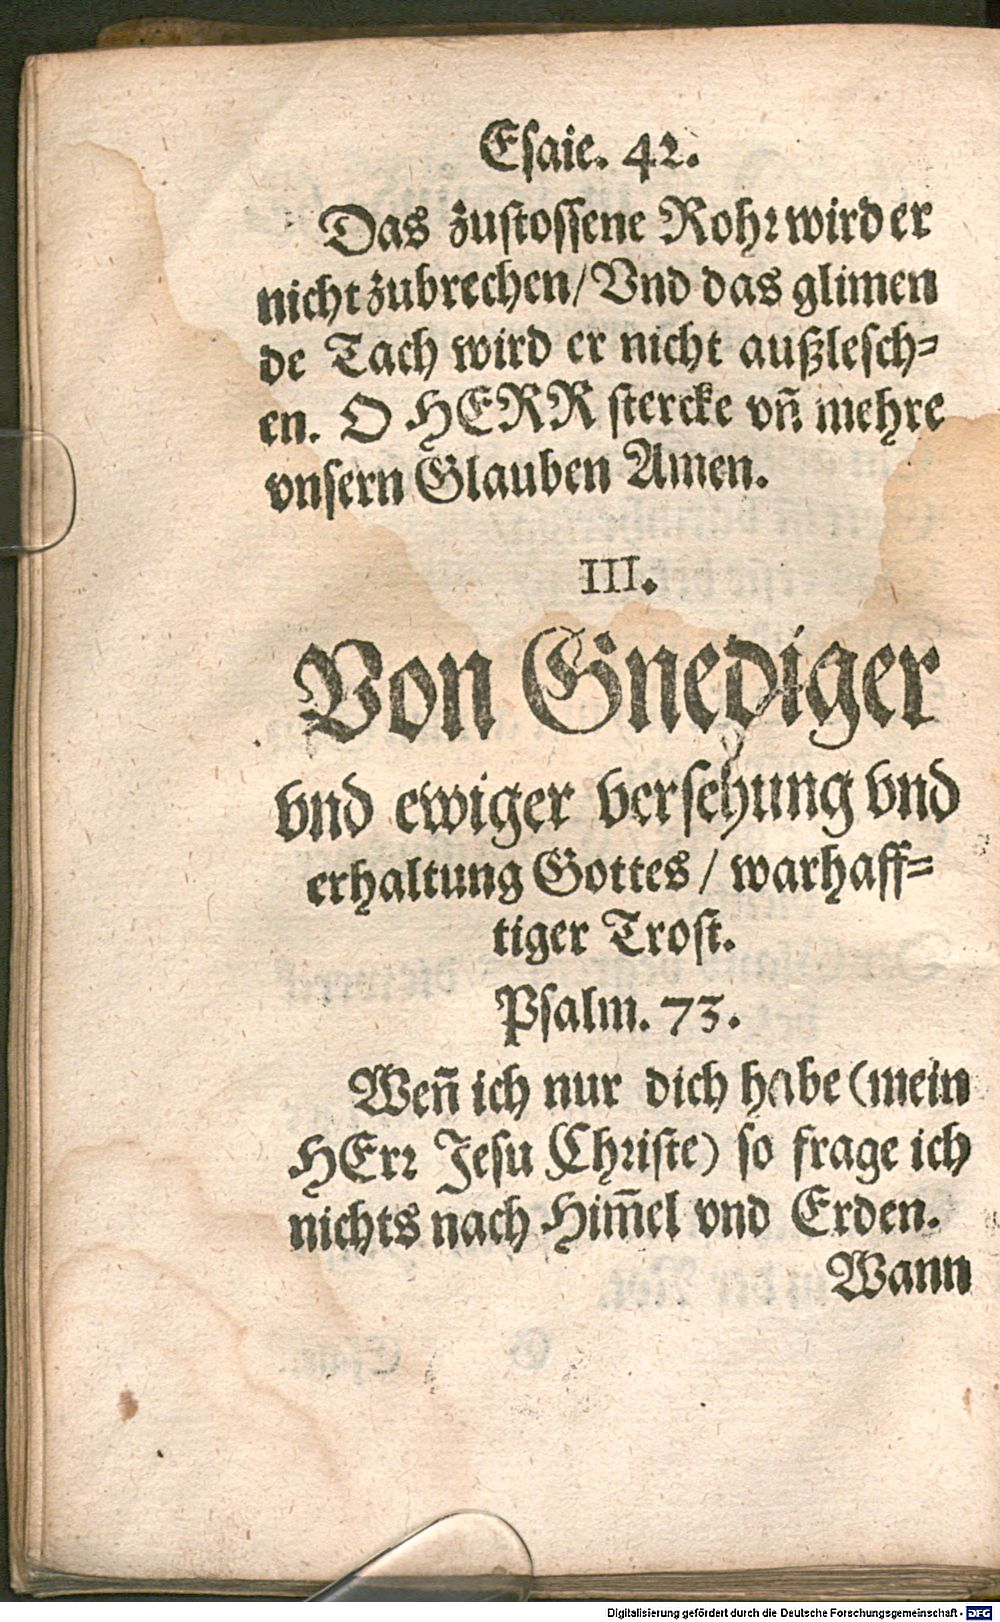 Esaie. 42.
Das zustossene Rohr wird er
nicht zubrechen/ Vnd das glimen
de Tach wird er nicht außlesch=
en. O HERR stercke vn̄ mehre
vnsern Glauben Amen.
III.
Von Gnediger
vnd ewiger versehung vnd
erhaltung Gottes / warhaff=
tiger Trost.
Psalm. 73.
Wen̄ ich nur dich habe (mein
HErr Jesu Christe) so frage ich
nichts nach Him̄el vnd Erden.
Wann
Digitalisierung gefördert durch die Deutsche Forschungsgemeinschaft - DFG